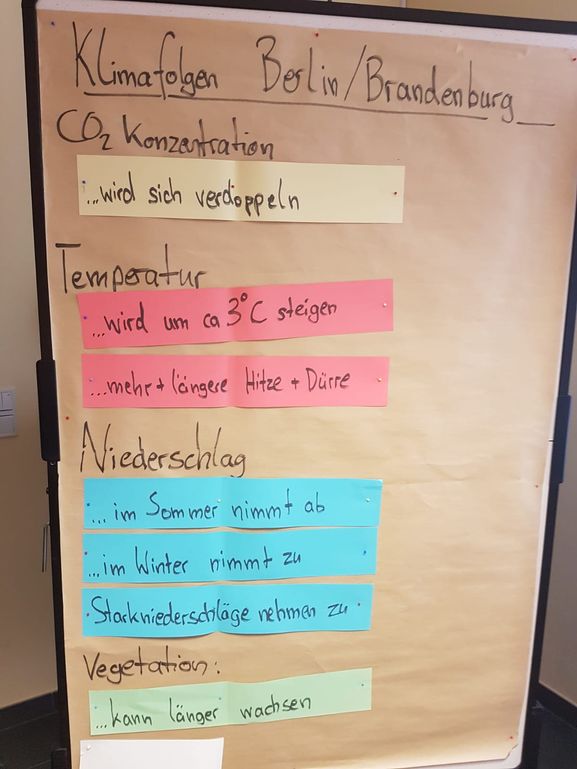 Klimafolgen Berlin/Brandenburg
CO₂ Konzentration
...wird sich verdoppeln
Temperatur
...wird um ca 3°C steigen
...mehr + längere Hitze + Dürre
Niederschlag
...im Sommer nimmt ab
...im Winter nimmt zu
Starkniederschläge nehmen zu
Vegetation:
...kann länger wachsen